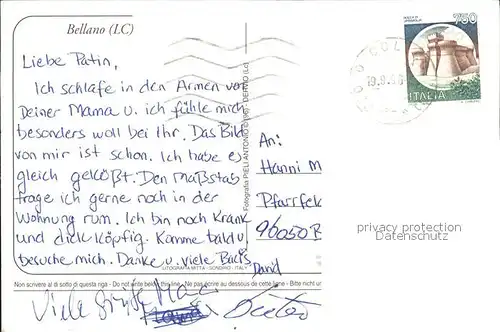 Bellano (LC)
750
ITALIA
Liebe Patin,
Ich schlafe in den Armen von
Deiner Mama u. ich fühle mich
besonders woll bei Ihr. Das Bild
von mir ist schon. Ich habe es
gleich geküßt. Den Maßstab
trage ich gerne noch in der
Wohnung rum. Ich bin noch Krank
und dickköpfig. Komme bald u.
besuche mich. Danke u. viele Bacis
David
An:
Hanni M
Pfarrfel
96050 B
privacy protection
Fotografia PIELI ANTONIO
DERVIO (LC)
LITOGRAFIA MITTA - SONDRIO - ITALY
Non scrivere al di sotto di questa riga - Do not write below this line - Ne pas écrire au dessous de cette ligne - Bitte nicht un
Viele Grüße
Dieter